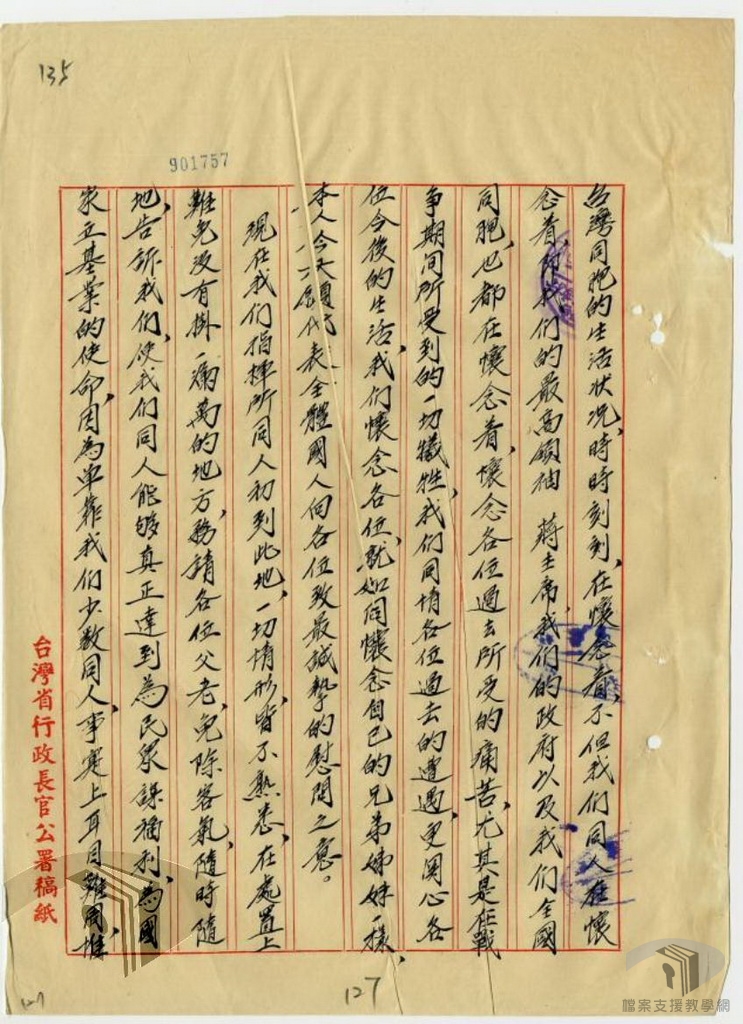 135
901757
台灣同胞的生活狀况，時時刻刻，在懷念着，不但我们同人在懷
念着，即我们的最高領袖　蔣主席，我们的政府以及我们全國
同胞，也都在懷念着，懷念各位過去所受的痛苦，尤其是在戰
争期间所受到的一切犠牲，我们同情各位過去的遭遇，更関心各
位今後的生活，我们懷念各位，就如同懷念自己的兄弟姊妹一樣，
本人今天願代表全體國人向各位致最誠摯的慰問之意。
現在我们指揮所同人初到此地，一切情形，皆不熟悉，在處置上
難免没有掛一漏萬的地方，務請各位父老，免除客氣，隨時隨
地，告訴我们，使我们同人能够真正達到為民衆謀福利，為國
家立基業的使命，因為单靠我们少数同人，事实上耳目難周，惟
台灣省行政長官公署稿紙
127
127
檔案支援教學網